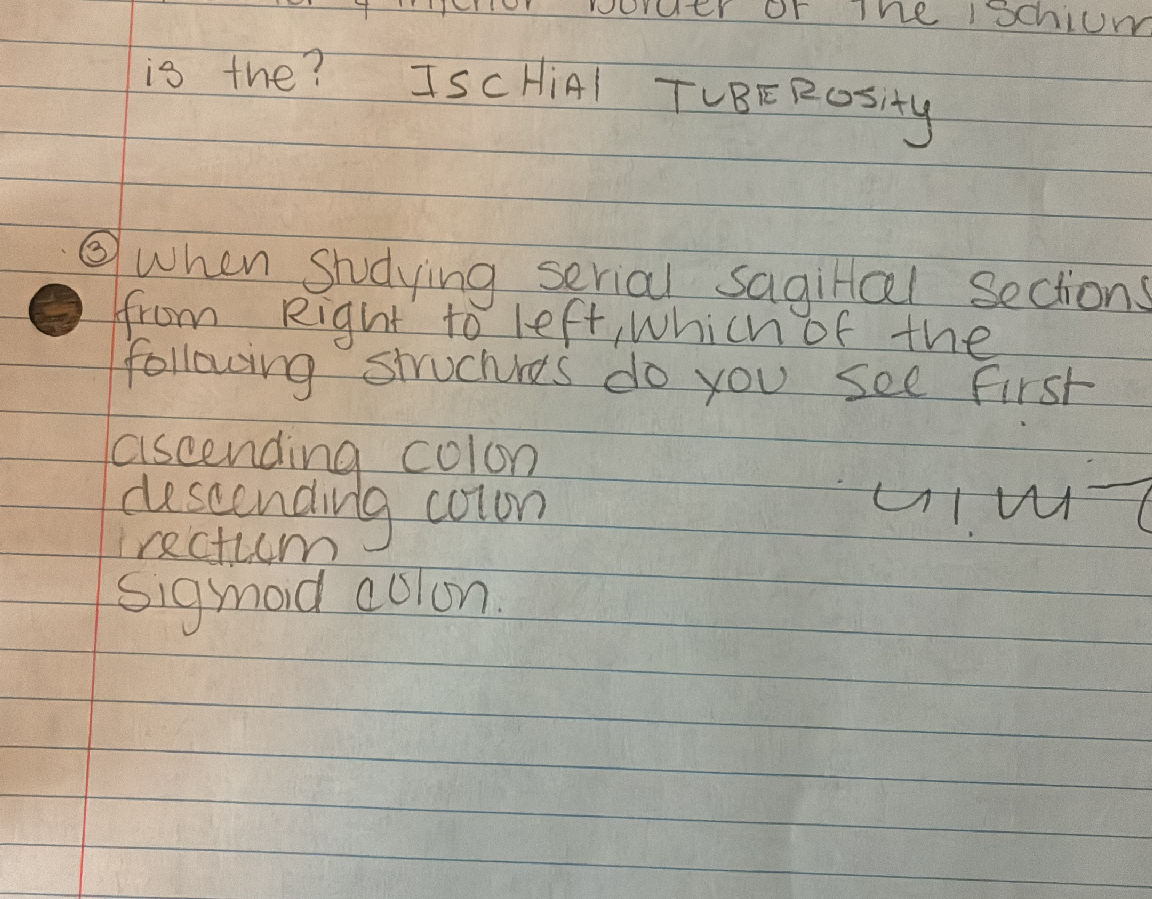 inferior border of the ischium
is the? ISCHiAl TUBEROsity
③ When Studying serial sagittal Sections
from Right to left, Which of the
following structures do you see first
ascending colon
descending colon
rectum
Sigmoid colon.